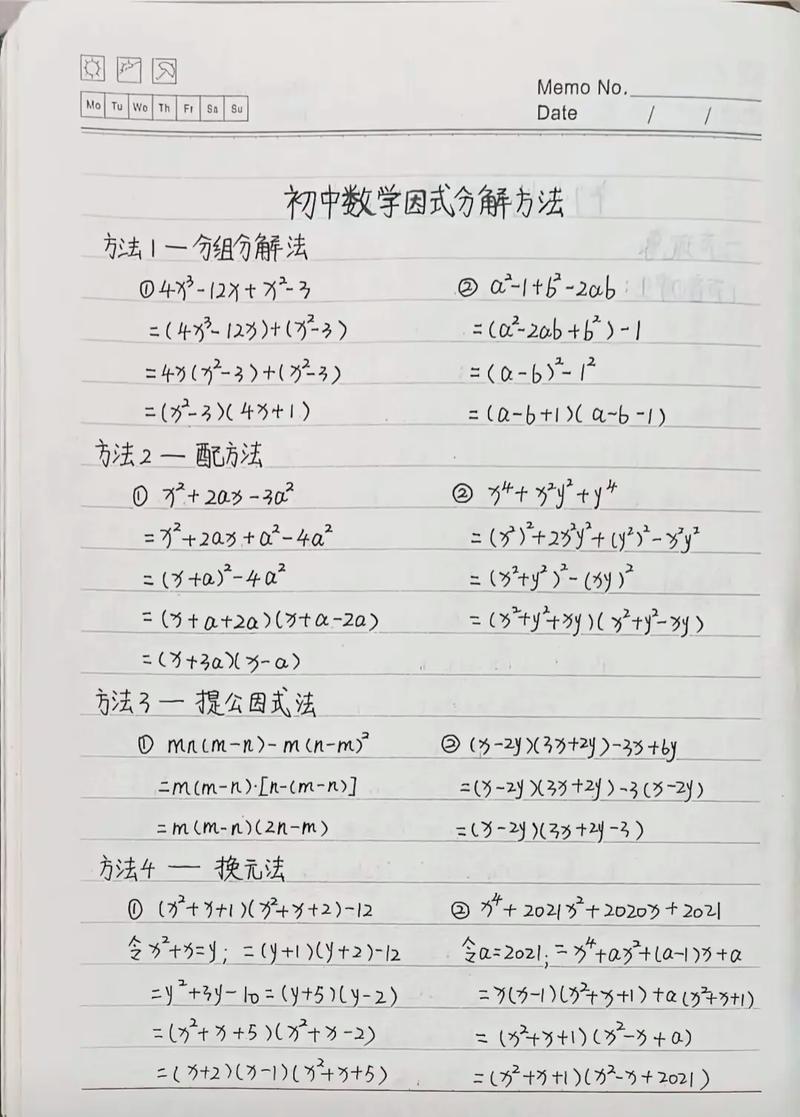 Memo No.
Mo Tu We Th Fr Sa Su
Date / /
初中数学因式分解方法
方法1—分组分解法
①4x³-12x+x²-3
=(4x³-12x)+(x²-3)
=4x(x²-3)+(x²-3)
=(x²-3)(4x+1)
② a²-1+b²-2ab
=(a²-2ab+b²)-1
=(a-b)²-1²
=(a-b+1)(a-b-1)
方法2—配方法
① x²+2ax-3a²
=x²+2ax+a²-4a²
=(x+a)²-4a²
=(x+a+2a)(x+a-2a)
=(x+3a)(x-a)
② x⁴+x²y²+y⁴
=(x²)²+2x²y²+(y²)²-x²y²
=(x²+y²)²-(xy)²
=(x²+y²+xy)(x²+y²-xy)
方法3—提公因式法
① mn(m-n)-m(n-m)²
=m(m-n)·[n-(m-n)]
=m(m-n)(2n-m)
② (x-2y)(3x+2y)-3x+6y
=(x-2y)(3x+2y)-3(x-2y)
=(x-2y)(3x+2y-3)
方法4—换元法
① (x²+x+1)(x²+x+2)-12
令x²+x=y; =(y+1)(y+2)-12
=y²+3y-10=(y+5)(y-2)
=(x²+x+5)(x²+x-2)
=(x+2)(x-1)(x²+x+5)
② x⁴+2021x²+2020x+2021
令a=2021;=x⁴+ax²+(a-1)x+a
=x(x-1)(x²+x+1)+a(x²+x+1)
=(x²+x+1)(x²-x+a)
=(x²+x+1)(x²-x+2021)